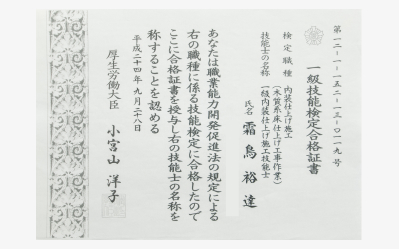 第一二-一-一五二-一三-〇一一九号
一級技能検定合格証書
検定職種 内装仕上げ施工
(木質系床仕上げ工事作業)
技能士の名称 一級内装仕上げ施工技能士
氏名 霜鳥裕達
あなたは職業能力開発促進法の規定による
右の職種に係る技能検定に合格したので
ここに合格証書を授与し右の技能士の名称を
称することを認める
平成二十四年九月二十八日
厚生労働大臣 小宮山洋子